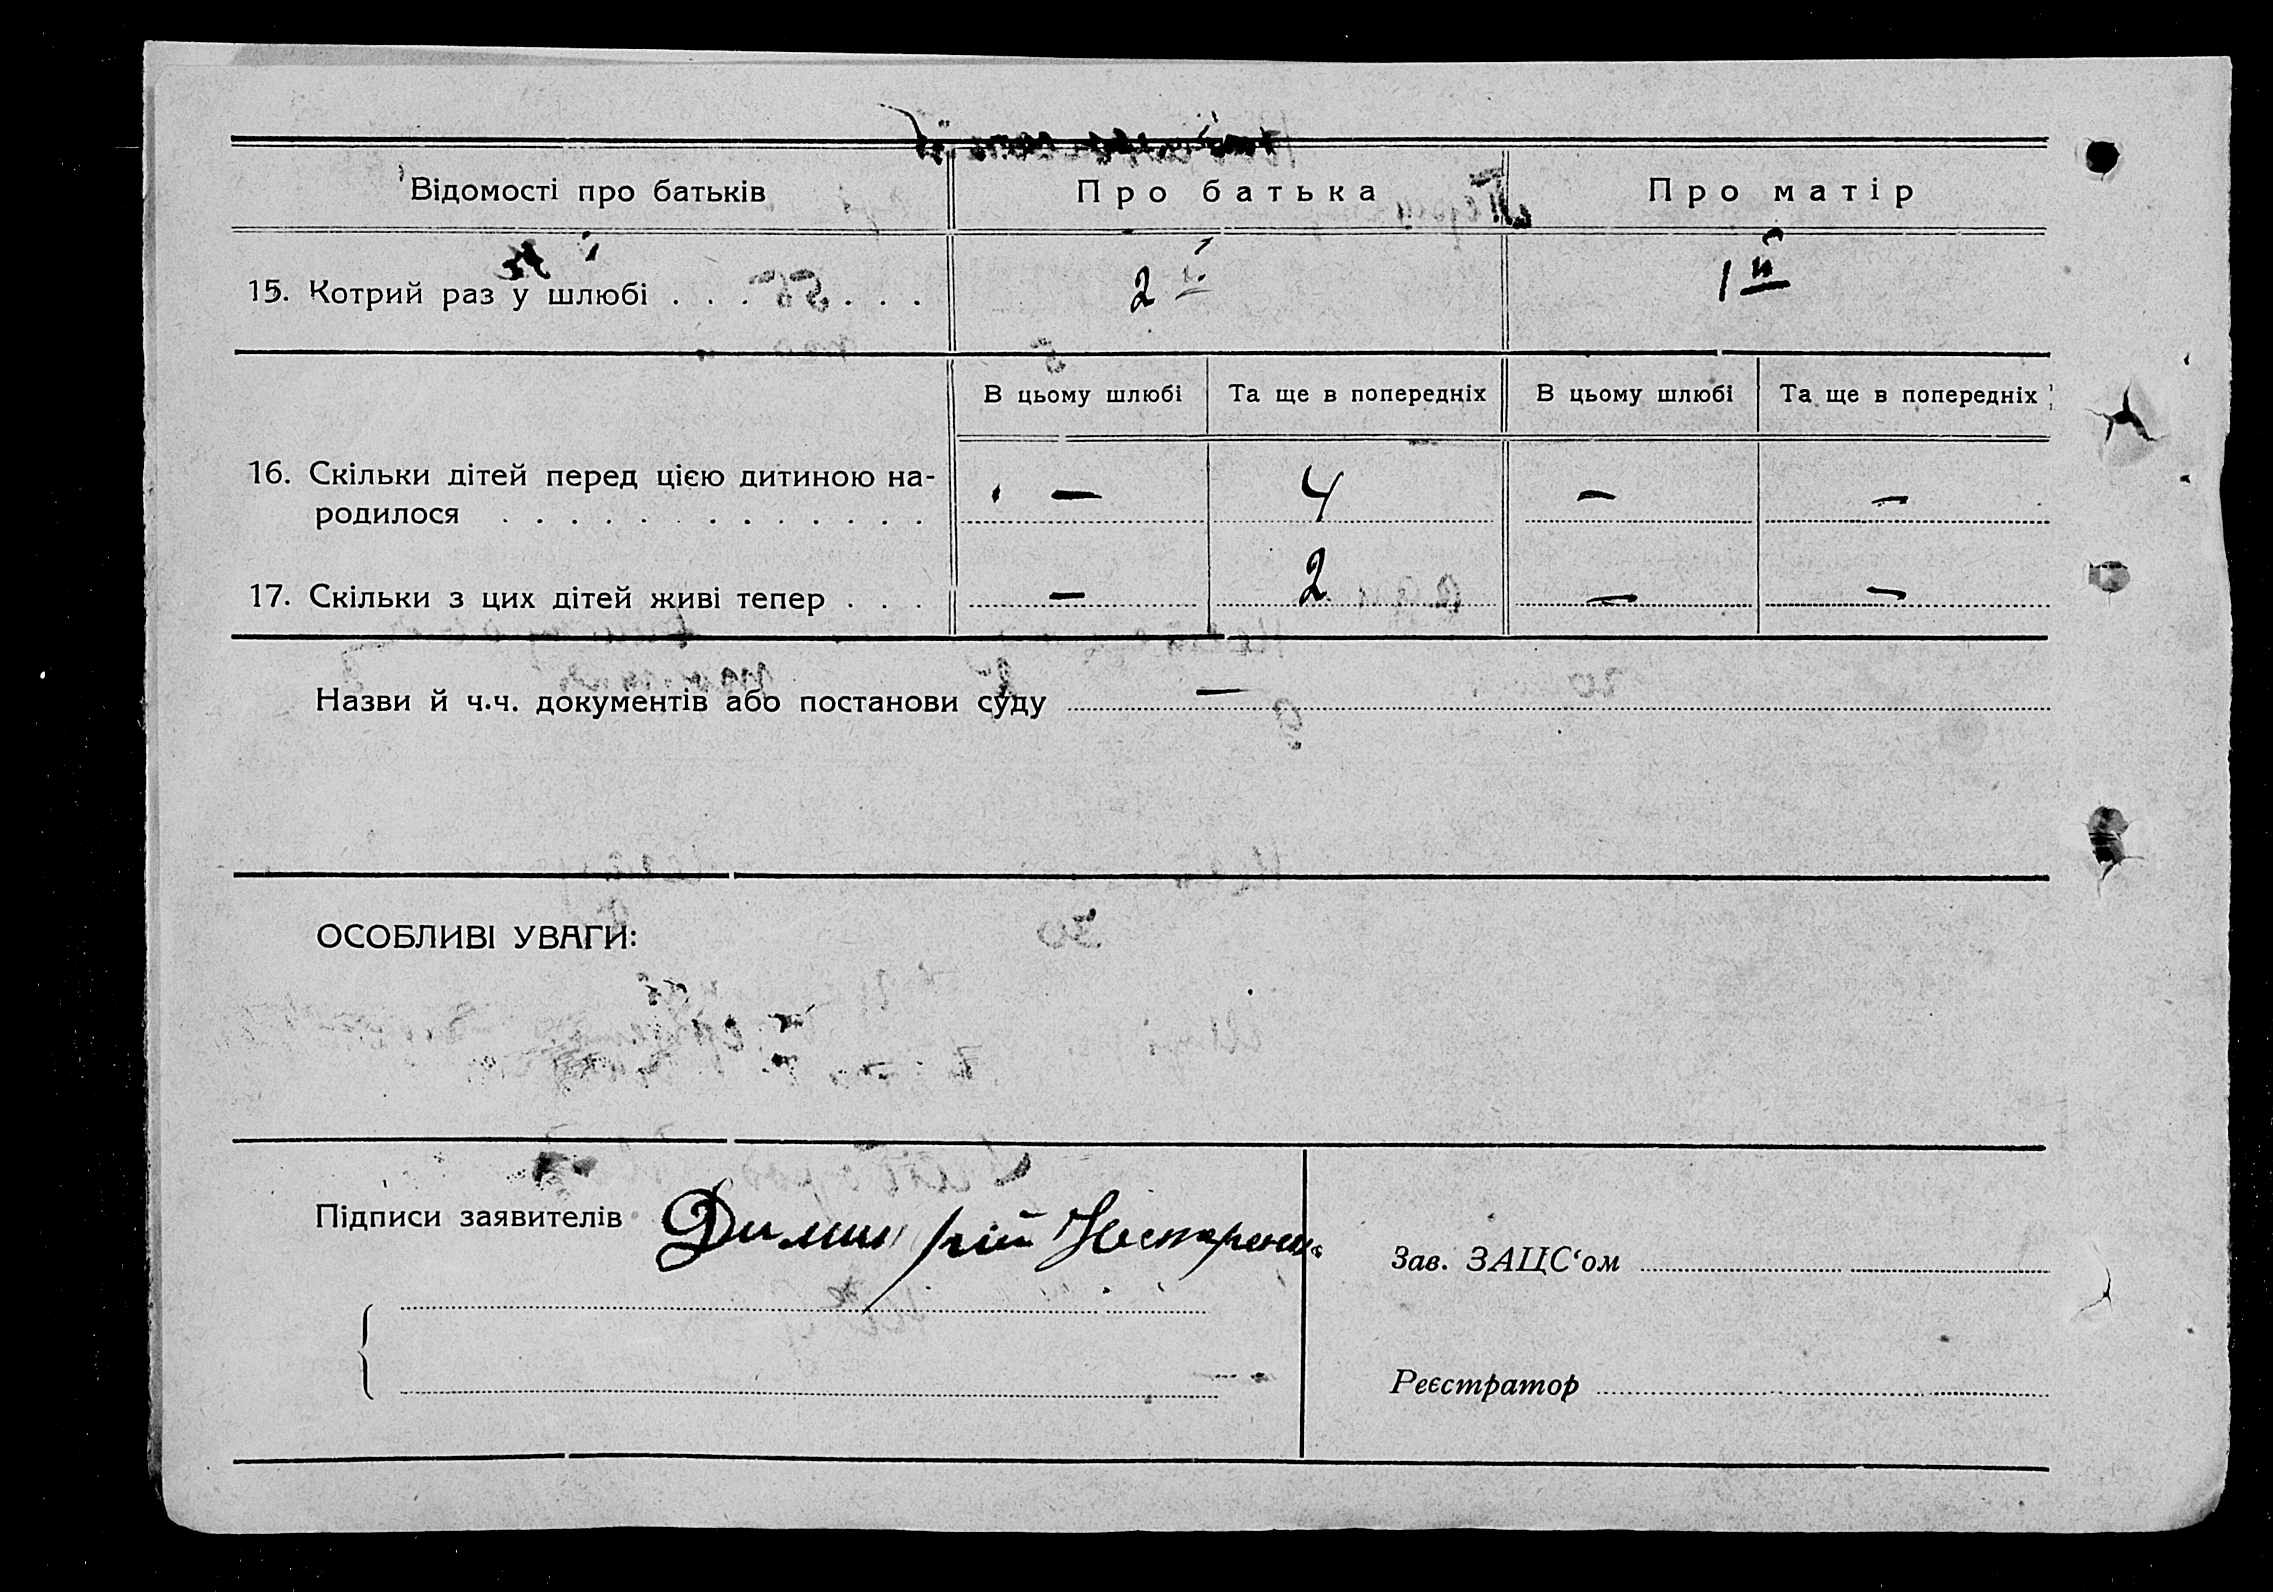 Відомості про батьків Про батька Про матір
15. Котрий раз у шлюбі . . . . . . . 2 й 1 й
В цьому шлюбі Та ще в попередніх В цьому шлюбі Та ще в попередніх
16. Скільки дітей перед цією дитиною на-
родилося . . . . . . . . . . . . . — 4 — —
17. Скільки з цих дітей живі тепер . . . — 2 — —
Назви й ч.ч. документів або постанови суду —
ОСОБЛИВІ УВАГИ:
Підписи заявителів
Зав. ЗАЦС‘ом
Реєстратор